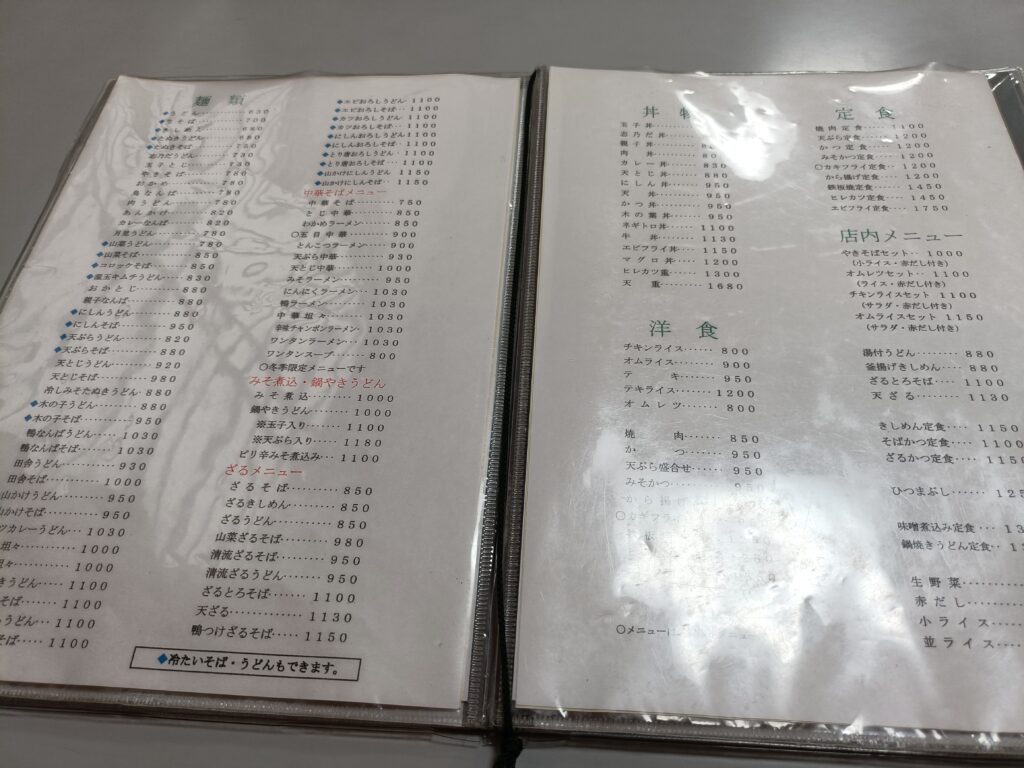 麺類
◆うどん‥‥‥630
◆そば‥‥‥680
◆きしめん‥‥‥680
◆たぬきうどん‥‥680
◆たぬきそば‥‥‥750
志乃だうどん‥‥730
玉子とじ‥‥‥730
やきそば‥‥‥780
おかめ‥‥‥780
鳥なんば‥‥‥780
肉うどん‥‥‥780
あんかけ‥‥‥820
カレーなんば‥‥820
月見うどん‥‥‥780
◆山菜うどん‥‥‥780
◆山菜そば‥‥‥850
◆コロッケそば‥‥850
◆温玉キムチうどん‥850
おかとじ‥‥‥880
親子なんば‥‥‥880
◆にしんうどん‥‥880
◆にしんそば‥‥‥950
◆天ぷらうどん‥‥820
◆天ぷらそば‥‥‥880
天とじうどん‥‥920
天とじそば‥‥‥980
冷しみそたぬきうどん‥880
◆木の子うどん‥‥880
◆木の子そば‥‥‥950
鴨なんばうどん‥‥1030
鴨なんばそば‥‥1030
田舎うどん‥‥‥930
田舎そば‥‥‥1000
山かけうどん‥‥950
山かけそば‥‥‥950
ツカレーうどん‥‥1030
坦々‥‥‥1000
坦々‥‥‥1000
きうどん‥‥‥1100
そば‥‥‥1100
うどん‥‥‥1100
そば‥‥‥1100
◆エビおろしうどん‥1100
◆エビおろしそば‥‥1100
◆カツおろしうどん‥1100
◆カツおろしそば‥‥1100
◆にしんおろしうどん‥1100
◆にしんおろしそば‥1100
◆とり唐おろしうどん‥1100
◆とり唐おろしそば‥1100
◆山かけにしんうどん‥1150
◆山かけにしんそば‥1150
中華そばメニュー
中華そば‥‥‥750
とじ中華‥‥‥850
わかめラーメン‥‥850
○五目中華‥‥‥900
とんこつラーメン‥‥900
天ぷら中華‥‥‥930
天とじ中華‥‥‥1000
みそラーメン‥‥‥950
にんにくラーメン‥‥950
鴨ラーメン‥‥‥1030
中華坦々‥‥‥1030
辛味チャンポンラーメン‥1030
ワンタンラーメン‥‥1030
ワンタンスープ‥‥‥800
○冬季限定メニューです
みそ煮込・鍋やきうどん
みそ煮込‥‥‥1000
鍋やきうどん‥‥‥1000
※玉子入り‥‥‥1100
※天ぷら入り‥‥‥1180
ピリ辛みそ煮込み‥‥1100
ざるメニュー
ざるそば‥‥‥850
ざるきしめん‥‥‥850
ざるうどん‥‥‥850
山菜ざるそば‥‥‥980
清流ざるそば‥‥‥950
清流ざるうどん‥‥‥950
ざるとろそば‥‥‥1100
天ざる‥‥‥1130
鴨つけざるそば‥‥‥1150
◆冷たいそば・うどんもできます。
丼物
玉子丼
志乃だ丼
親子丼
肉丼
カレー丼‥‥‥830
天とじ丼‥‥‥880
にしん丼‥‥‥950
天丼‥‥‥950
かつ丼‥‥‥950
木の葉丼‥‥‥950
ネギトロ丼‥‥‥1100
牛丼‥‥‥1130
エビフライ丼‥‥‥1150
マグロ丼‥‥‥1200
ヒレカツ重‥‥‥1300
天重‥‥‥1680
洋食
チキンライス‥‥‥800
オムライス‥‥‥900
テキ‥‥‥950
テキライス‥‥‥1200
オムレツ‥‥‥800
焼肉‥‥‥850
かつ‥‥‥950
天ぷら盛合せ‥‥‥950
みそかつ‥‥‥950
から揚げ
○カキフライ
○メニュー
定食
焼肉定食‥‥‥1100
天ぷら定食‥‥‥1200
かつ定食‥‥‥1200
みそかつ定食‥‥‥1200
○カキフライ定食‥‥1200
から揚げ定食‥‥‥1200
鉄板焼定食‥‥‥1450
ヒレカツ定食‥‥‥1450
エビフライ定食‥‥1750
店内メニュー
やきそばセット‥‥1000
(小ライス・赤だし付き)
オムレツセット‥‥1100
(ライス・赤だし付き)
チキンライスセット 1100
(サラダ・赤だし付き)
オムライスセット 1150
(サラダ・赤だし付き)
湯付うどん‥‥‥880
釜揚げきしめん‥‥880
ざるとろそば‥‥‥1100
天ざる‥‥‥1130
きしめん定食‥‥‥1150
そばかつ定食‥‥‥1100
ざるかつ定食‥‥‥1150
ひつまぶし‥‥‥
味噌煮込み定食‥‥‥
鍋焼きうどん定食‥‥
生野菜‥‥‥
赤だし‥‥‥
小ライス‥‥‥
並ライス‥‥‥